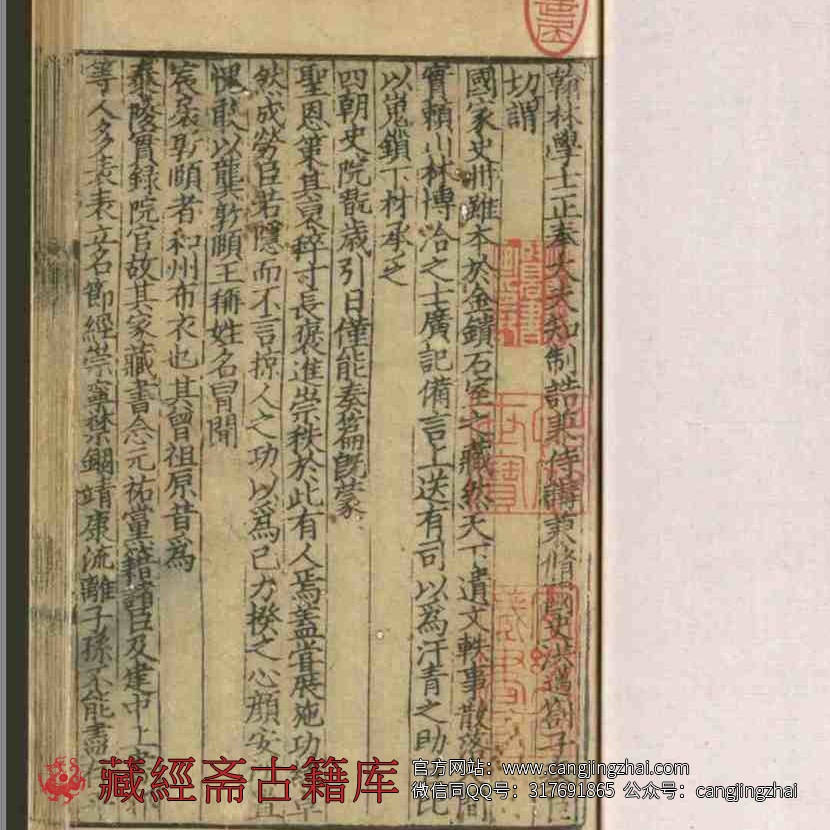 翰林學士正奉大夫知制誥兼侍講兼脩國史洪邁劄子
切謂
國家史冊雖本於金鐀石室之藏然天下遺文軼事散落
實賴山林博洽之士廣記備言上送有司以爲汗青之助
以嵬鎖下材承乏
四朝史院翫歲引日僅能奏篇旣蒙
聖恩第其衰稡寸長襃進崇秩於此有人焉蓋嘗展施功
然成勞臣若隱而不言掠人之功以爲己力撥之心顔安
愧敢以龔敦頤王稱姓名冒聞
宸扆敦頤者和州布衣也其曾祖原昔爲
泰陵實録院官故其家藏書念元祐黨籍諸臣及建中上
等人多表表立名節經崇寧禁錮靖康流離子孫不能盡
藏經斋古籍库
官方网站：www.cangjingzhai.com
微信同QQ号：317691865 公众号：cangjingzhai